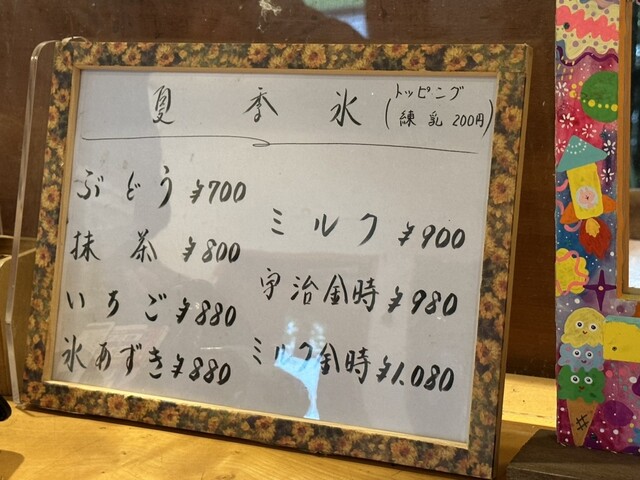 夏季氷
トッピング
(練乳 200円)
ぶどう ¥700
抹茶 ¥800
いちご ¥880
氷あずき ¥880
ミルク ¥900
宇治金時 ¥980
ミルク金時 ¥1,080